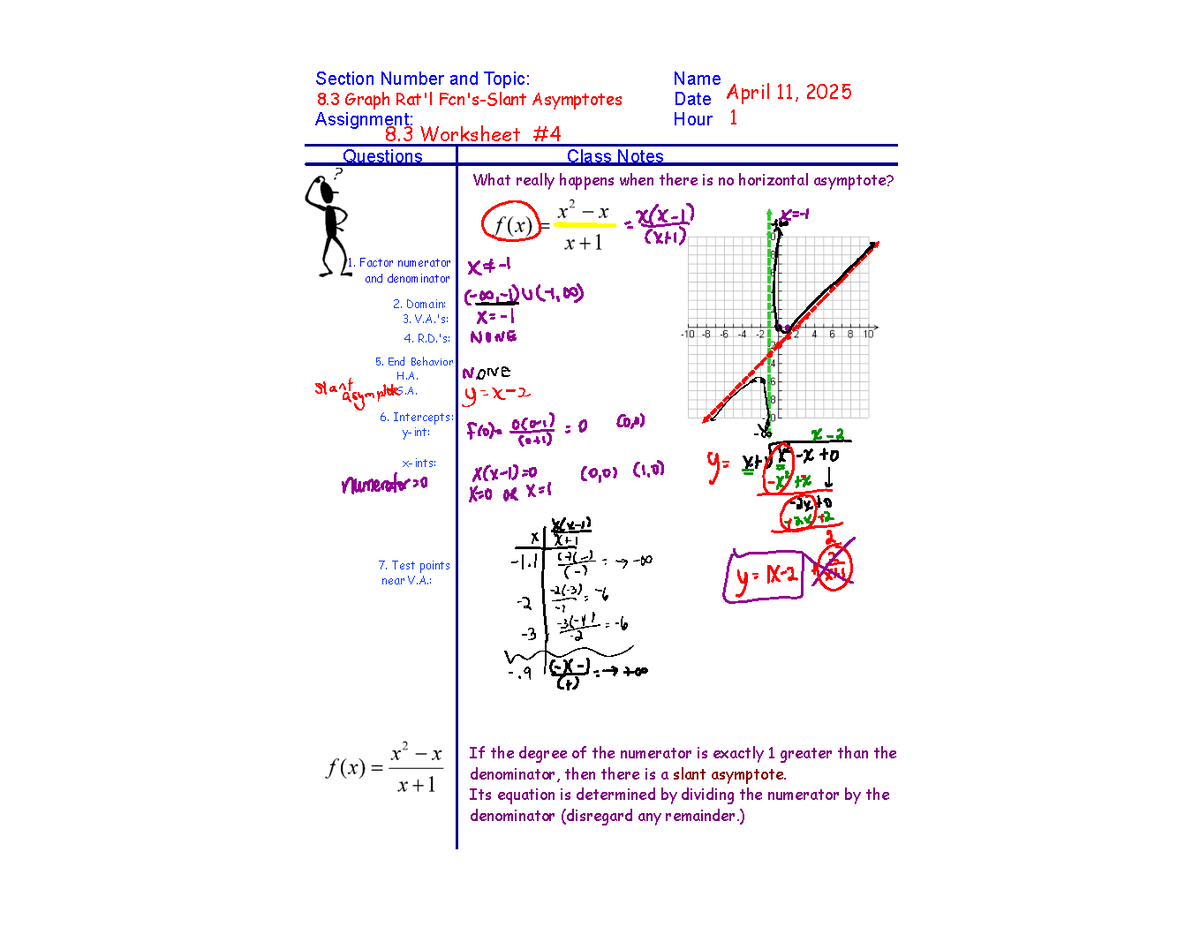 Section Number and Topic:
8.3 Graph Rat'l Fcn's-Slant Asymptotes
Assignment:
8.3 Worksheet #4
Name
Date April 11, 2025
Hour 1
Questions
Class Notes
?
What really happens when there is no horizontal asymptote?
f(x) = (x² − x)/(x + 1) = x(x-1)/(x+1)
1. Factor numerator
and denominator
x ≠ -1
2. Domain:
(-∞,-1)∪(-1,∞)
3. V.A.'s:
x = -1
4. R.D.'s:
NONE
5. End Behavior
H.A.
NONE
Slant asymptote S.A.
y = x-2
6. Intercepts:
y-int:
f(0)= 0(0-1)/(0+1) = 0 (0,0)
x-ints:
Numerator=0
x(x-1)=0 (0,0) (1,0)
x=0 or x=1
x | x(x-1)/x+1
-1.1 | (-)(-)/(-) = → -∞
-2 | -2(-3)/-1 = -6
-3 | -3(-4)/-2 = -6
-.9 | (-)(-)/(+) = → +∞
7. Test points
near V.A.:
x=-1
+∞
-10 -8 -6 -4 -2 2 4 6 8 10
-∞
x - 2
y = x+1 x² -x +0
-x² +x
-2x +0
+2x +2
2
y = 1x-2 + 2/x+1
f(x) = (x² − x)/(x + 1)
If the degree of the numerator is exactly 1 greater than the
denominator, then there is a slant asymptote.
Its equation is determined by dividing the numerator by the
denominator (disregard any remainder.)